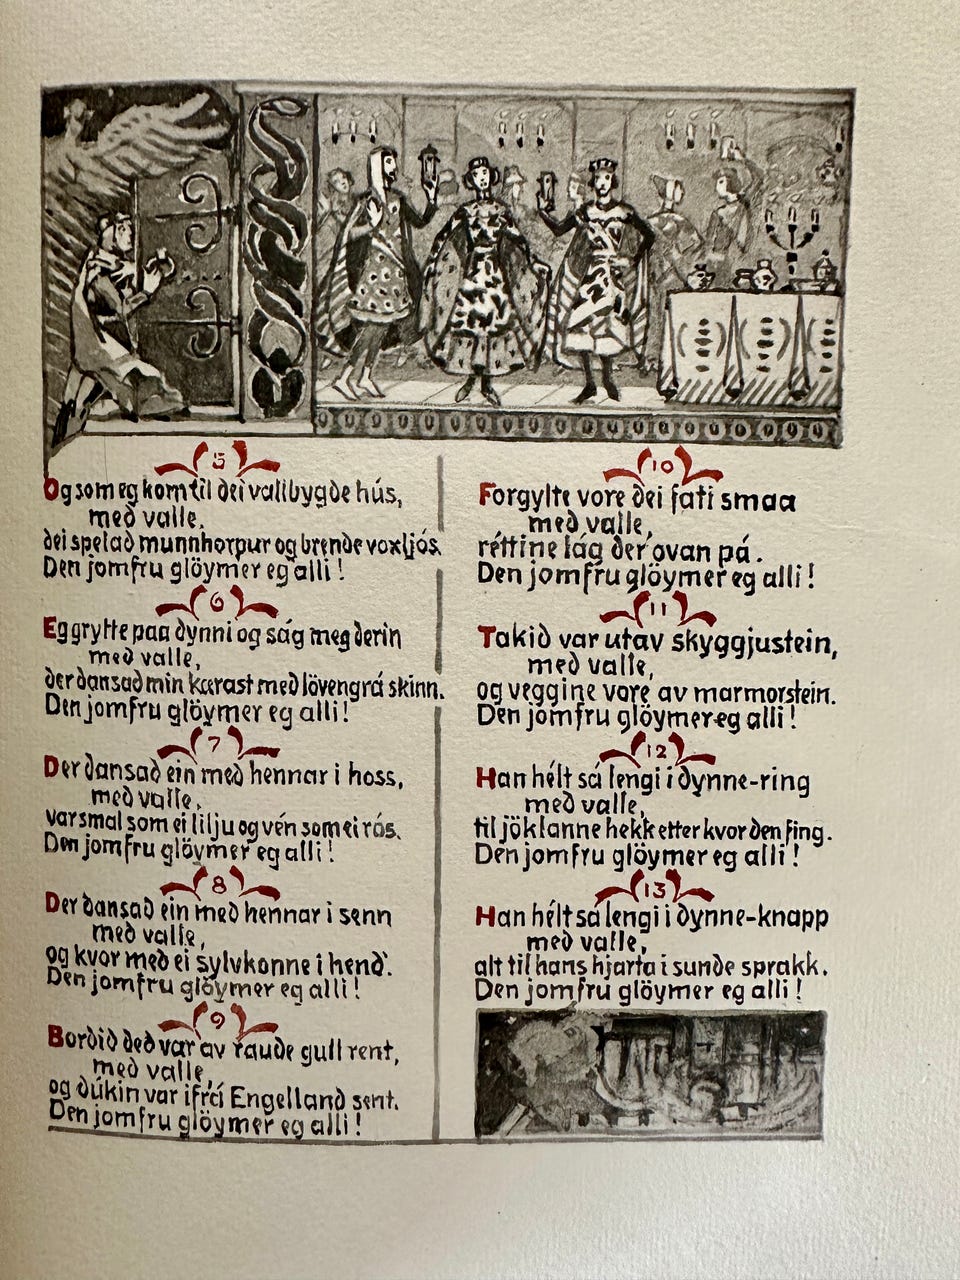 5
Og som eg kom til dei vallbygde hús,
með valle,
dei spelað munnhorpur og brende voxljós.
Den jomfru glöymer eg alli!
6
Eg grytte paa dynni og ság meg derin
með valle,
der dansað min kærast með lövengrá skinn.
Den jomfru glöymer eg alli!
7
Der dansað ein með hennar i hoss,
með valle,
var smal som ei lilju og vén som ei rós.
Den jomfru glöymer eg alli!
8
Der dansað ein með hennar i senn
með valle,
og kvor með ei sylvkonne i hend.
Den jomfru glöymer eg alli!
9
Borðið deð var av raude gull rent,
með valle,
og dúkin var ifrá Engelland sent.
Den jomfru glöymer eg alli!
10
Forgylte vore dei fati smaa
með valle,
réttine låg der ovan pá.
Den jomfru glöymer eg alli!
11
Takið var utav skyggjustein,
með valle,
og veggine vore av marmorstein.
Den jomfru glöymer eg alli!
12
Han hélt sá lengi i dynne-ring
með valle,
til jöklanne hekk etter kvor den fing.
Den jomfru glöymer eg alli!
13
Han hélt sá lengi i dynne-knapp
með valle,
alt til hans hjarta i sunde sprakk.
Den jomfru glöymer eg alli!